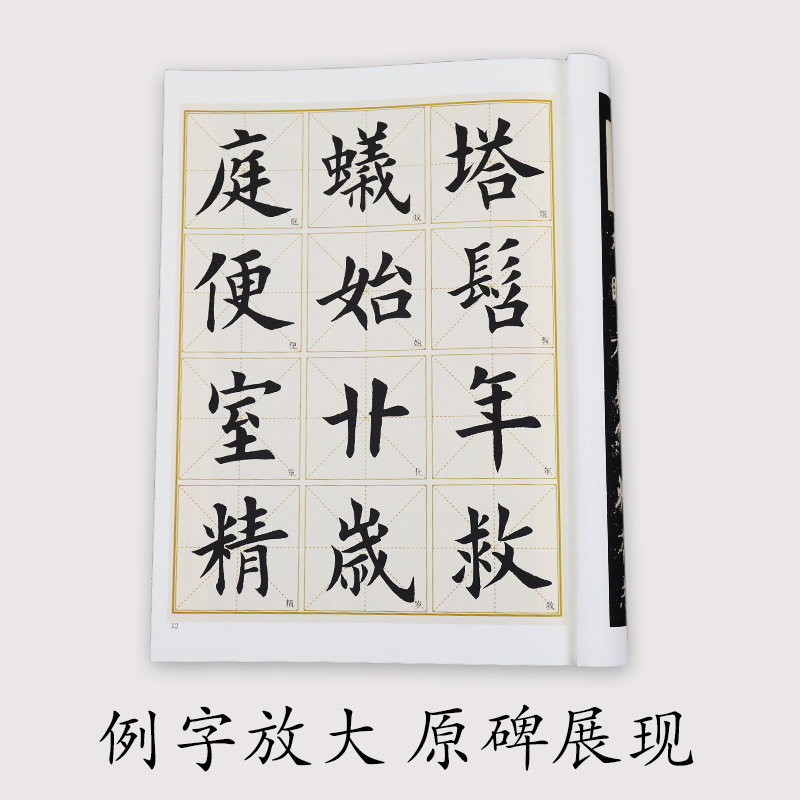 塔髫年救
蟻始廿歲
庭便室精
12
例字放大 原碑展现